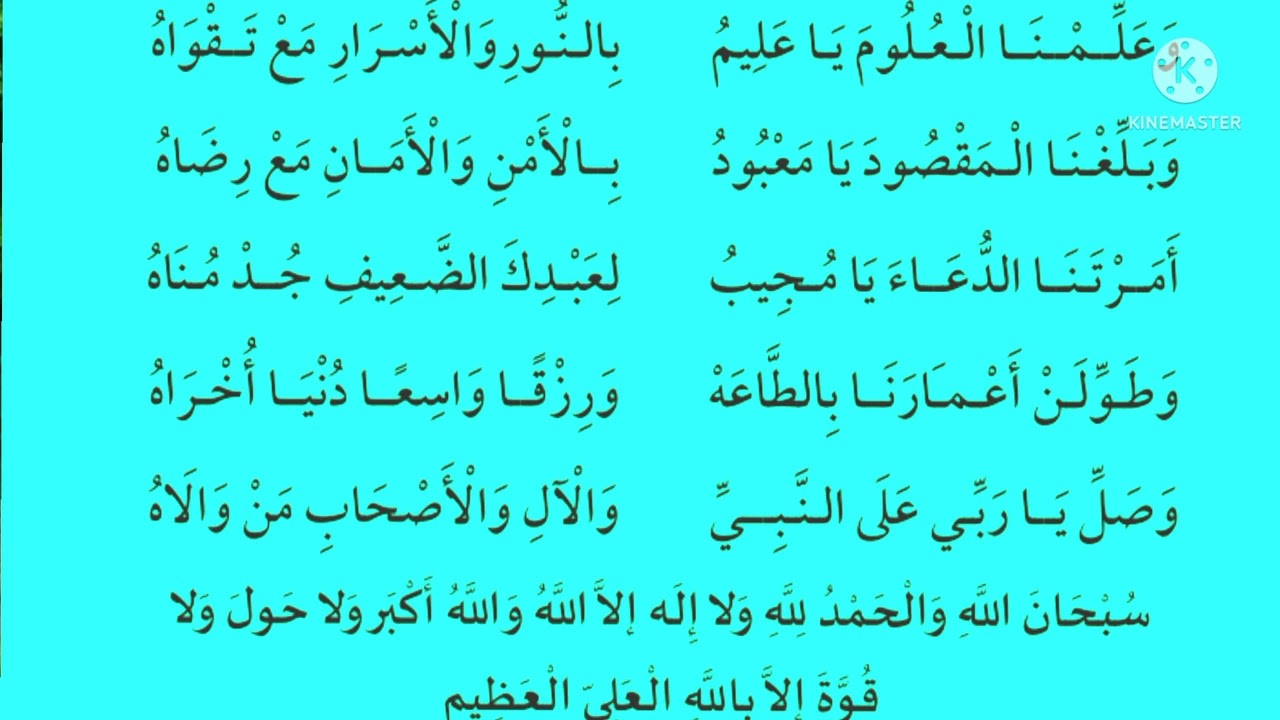 وَعَلِّمْنَا الْعُلُومَ يَا عَلِيمُ بِالنُّورِ وَالْأَسْرَارِ مَعْ تَقْوَاهُ
KINEMASTER
وَبَلِّغْنَا الْمَقْصُودَ يَا مَعْبُودُ بِالْأَمْنِ وَالْأَمَانِ مَعْ رِضَاهُ
أَمَرْتَنَا الدُّعَاءَ يَا مُجِيبُ لِعَبْدِكَ الضَّعِيفِ جُدْ مُنَاهُ
وَطَوِّلَنْ أَعْمَارَنَا بِالطَّاعَهْ وَرِزْقًا وَاسِعًا دُنْيَا أُخْرَاهُ
وَصَلِّ يَا رَبِّي عَلَى النَّبِيِّ وَالْآلِ وَالْأَصْحَابِ مَنْ وَالَاهُ
سُبْحَانَ اللَّهِ وَالْحَمْدُ لِلَّهِ وَلا إِلَه إلاَّ اللَّهُ وَاللَّهُ أَكْبَر وَلا حَولَ وَلا
قُوَّةَ إلاَّ بِاللَّهِ الْعَلِيّ الْعَظِيم